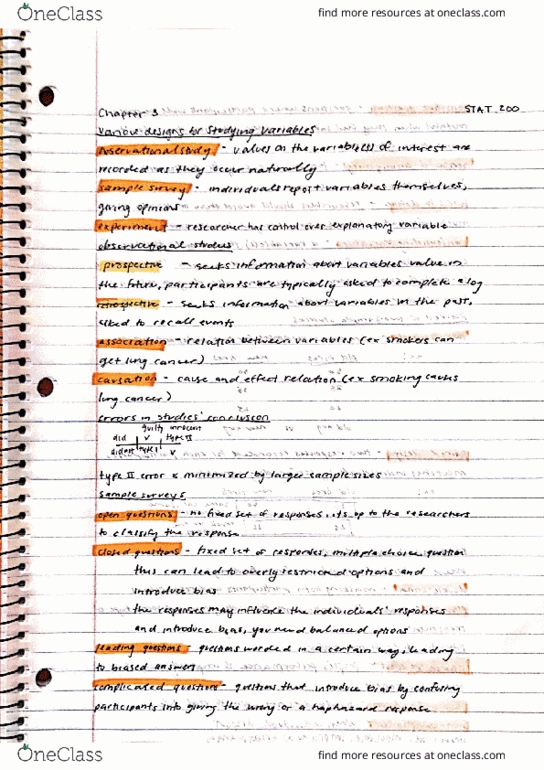 OneClass
find more resources at oneclass.com
Chapter 3 STAT 200
various designs for studying variables
observational study - values on the variable(s) of interest are
recorded as they occur naturally
sample survey - individuals report variables themselves,
giving opinions
experiment - researcher has control over explanatory variable
observational studies
prospective - seeks information about variables value in
the future, participants are typically asked to complete a log
retrospective - seeks information about variables in the past,
asked to recall events
association - relation between variables (ex smokers can
get lung cancer)
causation - cause and effect relation (ex smoking causes
lung cancer)
errors in studies' conclusion
guilty innocent
did v type II
didn't type I v
type II error is minimized by larger sample sizes
sample surveys
open questions - no fixed set of responses, its up to the researchers
to classify the response
closed questions - fixed set of responses, multiple choice question
this can lead to overly restricted options and
introduce bias
the responses may influence the individuals' responses
and introduce bias, you need balanced options
leading questions - questions worded in a certain way, leading
to biased answers
complicated questions - questions that introduce bias by confusing
participants into giving the wrong or a haphazard response
OneClass
find more resources at oneclass.com